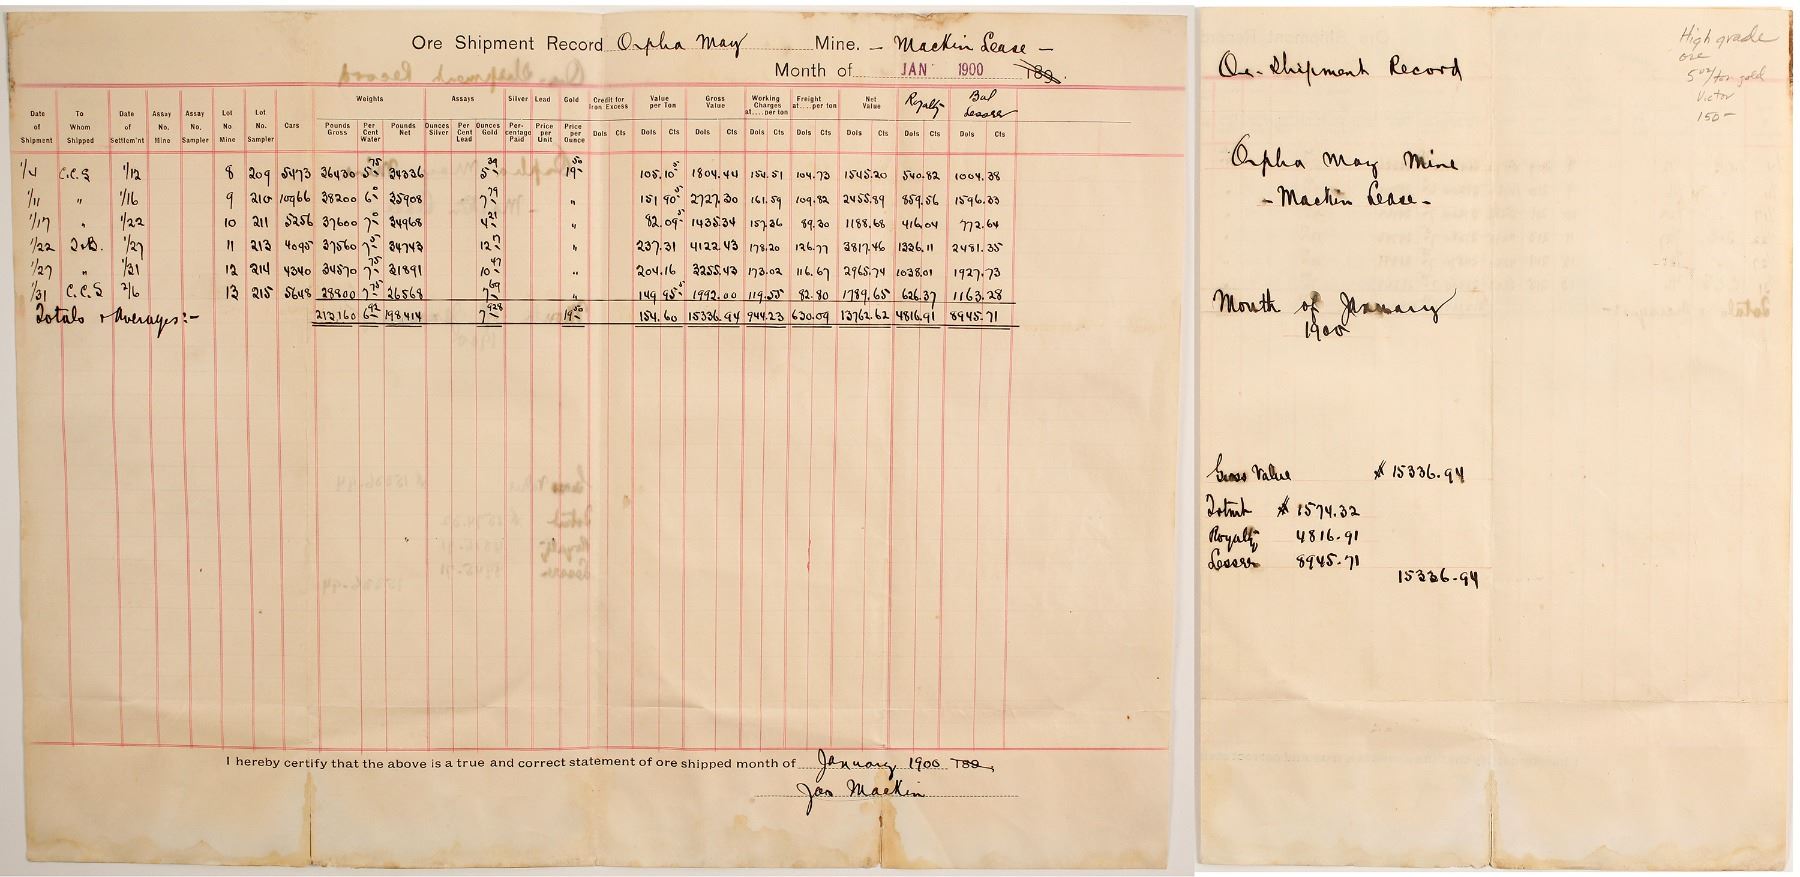 Ore Shipment Record Orpha May Mine. - Mackin Lease -
Month of JAN 1900 189 .
Date of Shipment To Whom Shipped Date of Settlem'nt Assay No. Mine Assay No. Sampler Lot No Mine Lot No. Sampler Cars Weights Pounds Gross Per Cent Water Pounds Net Assays Ounces Silver Per Cent Lead Ounces Gold Silver Percentage Paid Lead Price per Unit Gold Price per Ounce Credit for Iron Excess Dols Cts Value per Ton Dols Cts Gross Value Dols Cts Working Charges at....per ton Dols Cts Freight at....per ton Dols Cts Net Value Dols Cts Royalty Dols Cts Bal Lessee Dols Cts
1/4 C.C.S 1/12 8 209 5473 36430 5 75 34336 5 39 19 50 105.10 5 1804.44 154.51 104.73 1545.20 540.82 1004.38
1/11 " 1/16 9 210 10966 38200 6 0 35908 7 79 " 151 90 5 2727.30 161.59 109.82 2455.89 859.56 1596.33
1/17 " 1/22 10 211 5256 37600 7 0 34968 4 21 " 82.09 5 1435.34 157.36 89.30 1188.68 416.04 772.64
1/22 1/27 11 213 4095 37560 7 5 34743 12 17 " 237.31 4122.43 178.20 126.77 3817.46 1336.11 2481.35
1/27 " 1/31 12 214 4340 34570 7 75 31891 10 47 " 204.16 3255.43 173.02 116.67 2965.74 1038.01 1927.73
1/31 C.C.S 2/6 13 215 5648 28800 7 75 26568 7 69 " 149 95 5 1992.00 119.55 82.80 1789.65 626.37 1163.28
Totals & Averages:- 213160 6 92 198414 7 928 19 50 154.60 15336.94 944.23 630.09 13762.62 4816.91 8945.71
I hereby certify that the above is a true and correct statement of ore shipped month of January 1900 189 .
Jas Mackin
High grade
ore
5 oz/ton gold
Victor
150-
Ore-Shipment Record
Orpha May Mine
- Mackin Lease -
Month of January
1900
Gross Value $ 15336.94
$ 1574.32
Royalty 4816.91
Lessee 8945.71
15336.94